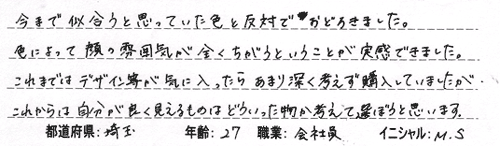 今まで似合うと思っていた色と反対でおどろきました。
色によって顔の雰囲気が全くちがうということが実感できました。
これまではデザイン等が気に入ったらあまり深く考えず購入していましたが、
これからは自分が良く見えるものはどういった物か考えて選ぼうと思います。
都道府県:埼玉 年齢:27 職業:会社員 イニシャル:M.S